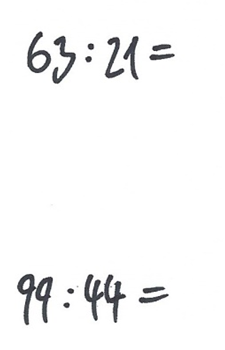 63:21=
99:44=